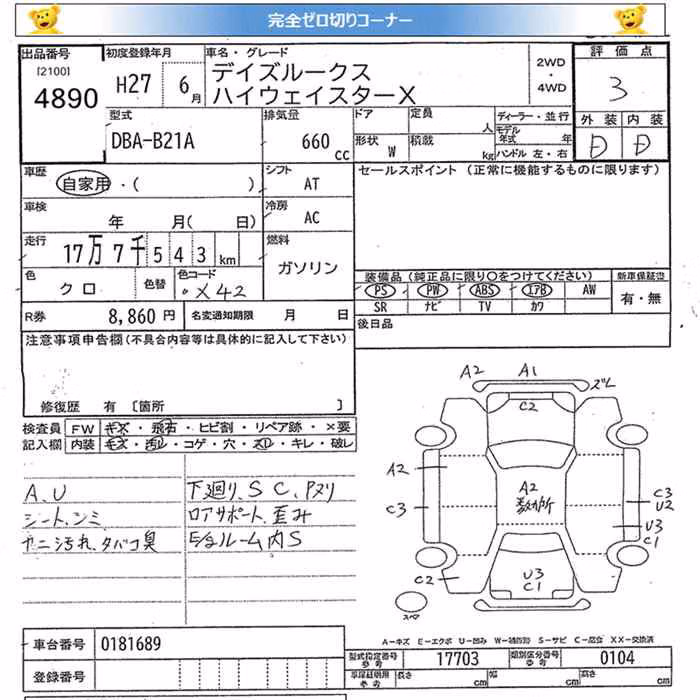 完全ゼロ切りコーナー
出品番号
[2100]
4890
初度登録年月
H27 6月
車名・グレード
デイズルークス
ハイウェイスターX
2WD
・
4WD
評価点
3
外装 内装
D D
型式
DBA-B21A
排気量
660 cc
ドア
定員
人
形状
W
積載
kg
ディーラー・並行
モデル年式 年
ハンドル 左・右
車歴
自家用・( )
シフト
AT
セールスポイント (正常に機能するものに限ります)
車検
年 月( 日)
冷房
AC
走行
17万7千543km
燃料
ガソリン
色
クロ
色替
色コード
X42
装備品 (純正品に限り○をつけてください)
PS PW ABS エアB AW
SR ナビ TV カワ
新車保証書
有・無
R券
8,860 円
名変通知期限 月 日
後日品
注意事項申告欄 (不具合内容等は具体的に記入して下さい)
修復歴 有 [箇所 ]
検査員
記入欄
FW キズ・飛石・ヒビ割・リペア跡・×要
内装 キズ・汚レ・コゲ・穴・スレ・キレ・破レ
A、U
シート、シミ
ヤニ汚れ、タバコ臭
下廻り、S C、Pヌリ
ロアサポート、歪み
E/gルーム内S
A2 A1 ズレ
C2
A2
C3
A2
数カ所
C3
U2
U3
C1
C2
U3
C1
スペア
A-キズ E-エクボ U-凹み W-補修跡 S-サビ C-腐食 XX-交換済
車台番号
0181689
登録番号
型式指定番号
参考
17703
類別区分番号
参考
0104
車庫証明用
参考
長さ cm
幅 cm
高さ cm